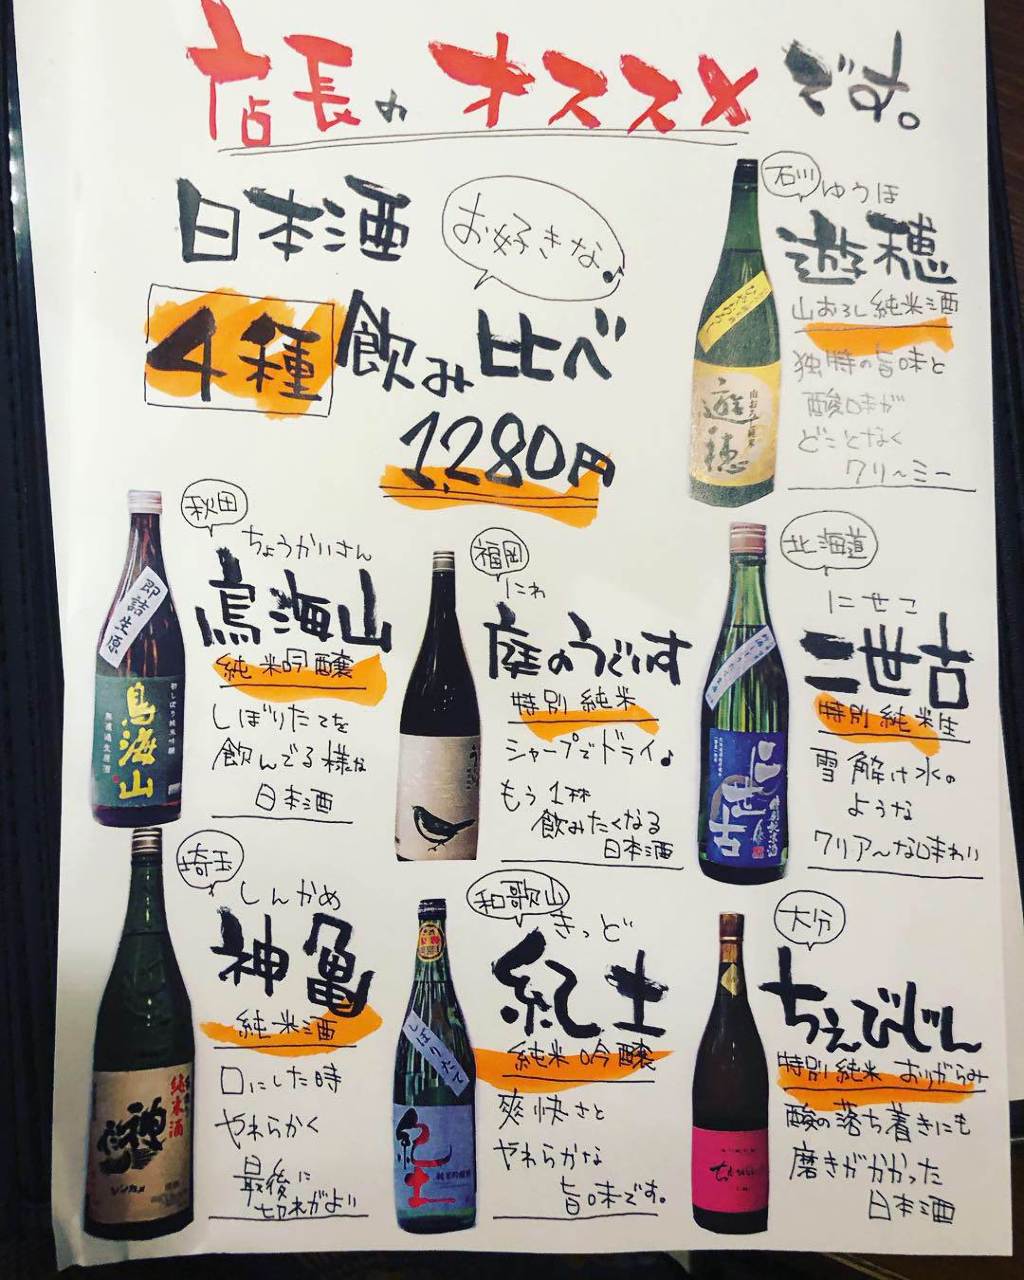 店長のオススメです。
日本酒
お好きな♪
4種飲み比べ
1,280円
石川
ゆうほ
遊穂
山おろし純米酒
独特の旨味と
酸味が
どことなく
クリ〜ミー
山おろし純米
遊穂
秋田
ちょうかいさん
鳥海山
純米吟醸
しぼりたてを
飲んでる様な
日本酒
即詰生原
鳥海山
福岡
にわ
庭のうぐいす
特別純米
シャープでドライ♪
もう1杯
飲みたくなる
日本酒
北海道
にせこ
二世古
特別純米生
雪解け水の
ような
クリア〜な味わい
二世古
特別純米酒
埼玉
しんかめ
神亀
純米酒
口にした時
やわらかく
最後に
切れがよい
純米酒
神亀
和歌山
きっど
紀土
純米吟醸
爽快さと
やわらかな
旨味です。
しぼりたて
紀土
純米吟醸酒
大分
ちえびじん
特別純米おりがらみ
酸の落ち着きにも
磨きがかかった
日本酒